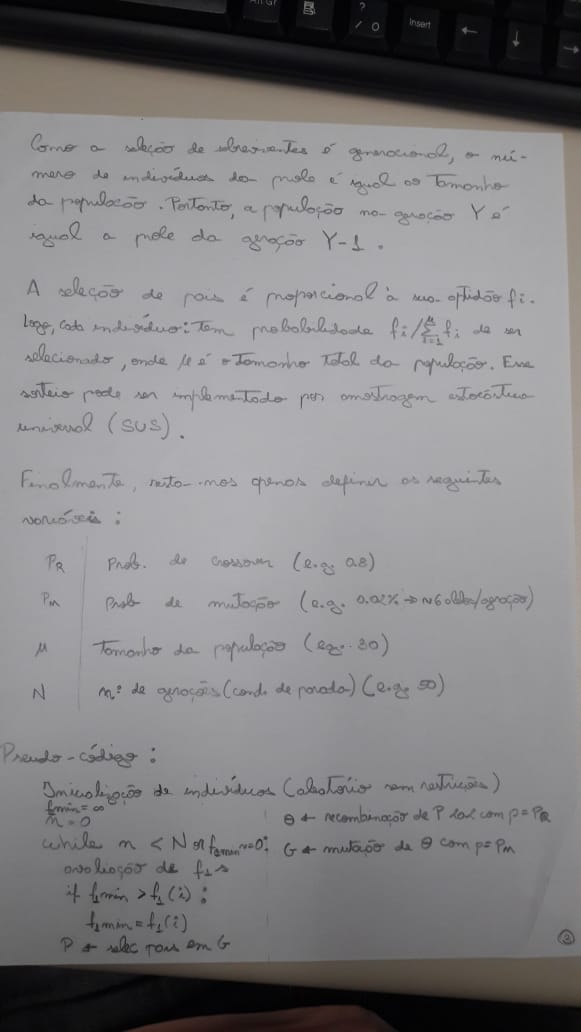 Insert
Como a seleção de sobreviventes é generacional, o nú-
mero de indivíduos da prole é igual ao tamanho
da população. Portanto, a população na geração Y é
igual a prole da geração Y-1.
A seleção de pais é proporcional à sua optidão fi.
Logo, cada indivíduo i tem probabilidade fi/∑fi de ser
selecionado, onde μ é o tamanho total da população. Esse
sorteio pode ser implementado por amostragem estocástica
universal (SUS).
Finalmente, resta-nos apenas definir as seguintes
variáveis:
PR | Prob. de crossover (e.g. 0.8)
Pm | Prob de mutação (e.g. 0.02% → ~6 /geração)
μ | Tamanho da população (e.g. 30)
N | nº de gerações (cond. de parada) (e.g. 50)
Pseudo-código:
Inicialização de indivíduos (aleatório sem restrições)
f1min = ∞
n = 0
while n < N or f1min = 0:
avaliação de f1
if f1min > f1(i):
f1min = f1(i)
P ← selec pais em G
θ ← recombinação de P com p=PR
G ← mutação de θ com p=Pm
3